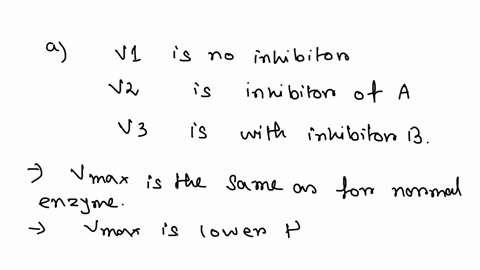 a) V1 is no inhibitor
V2 is inhibitor of A
V3 is with inhibitor B.
→ Vmax is the same as for normal
enzyme.
→ Vmax is lower